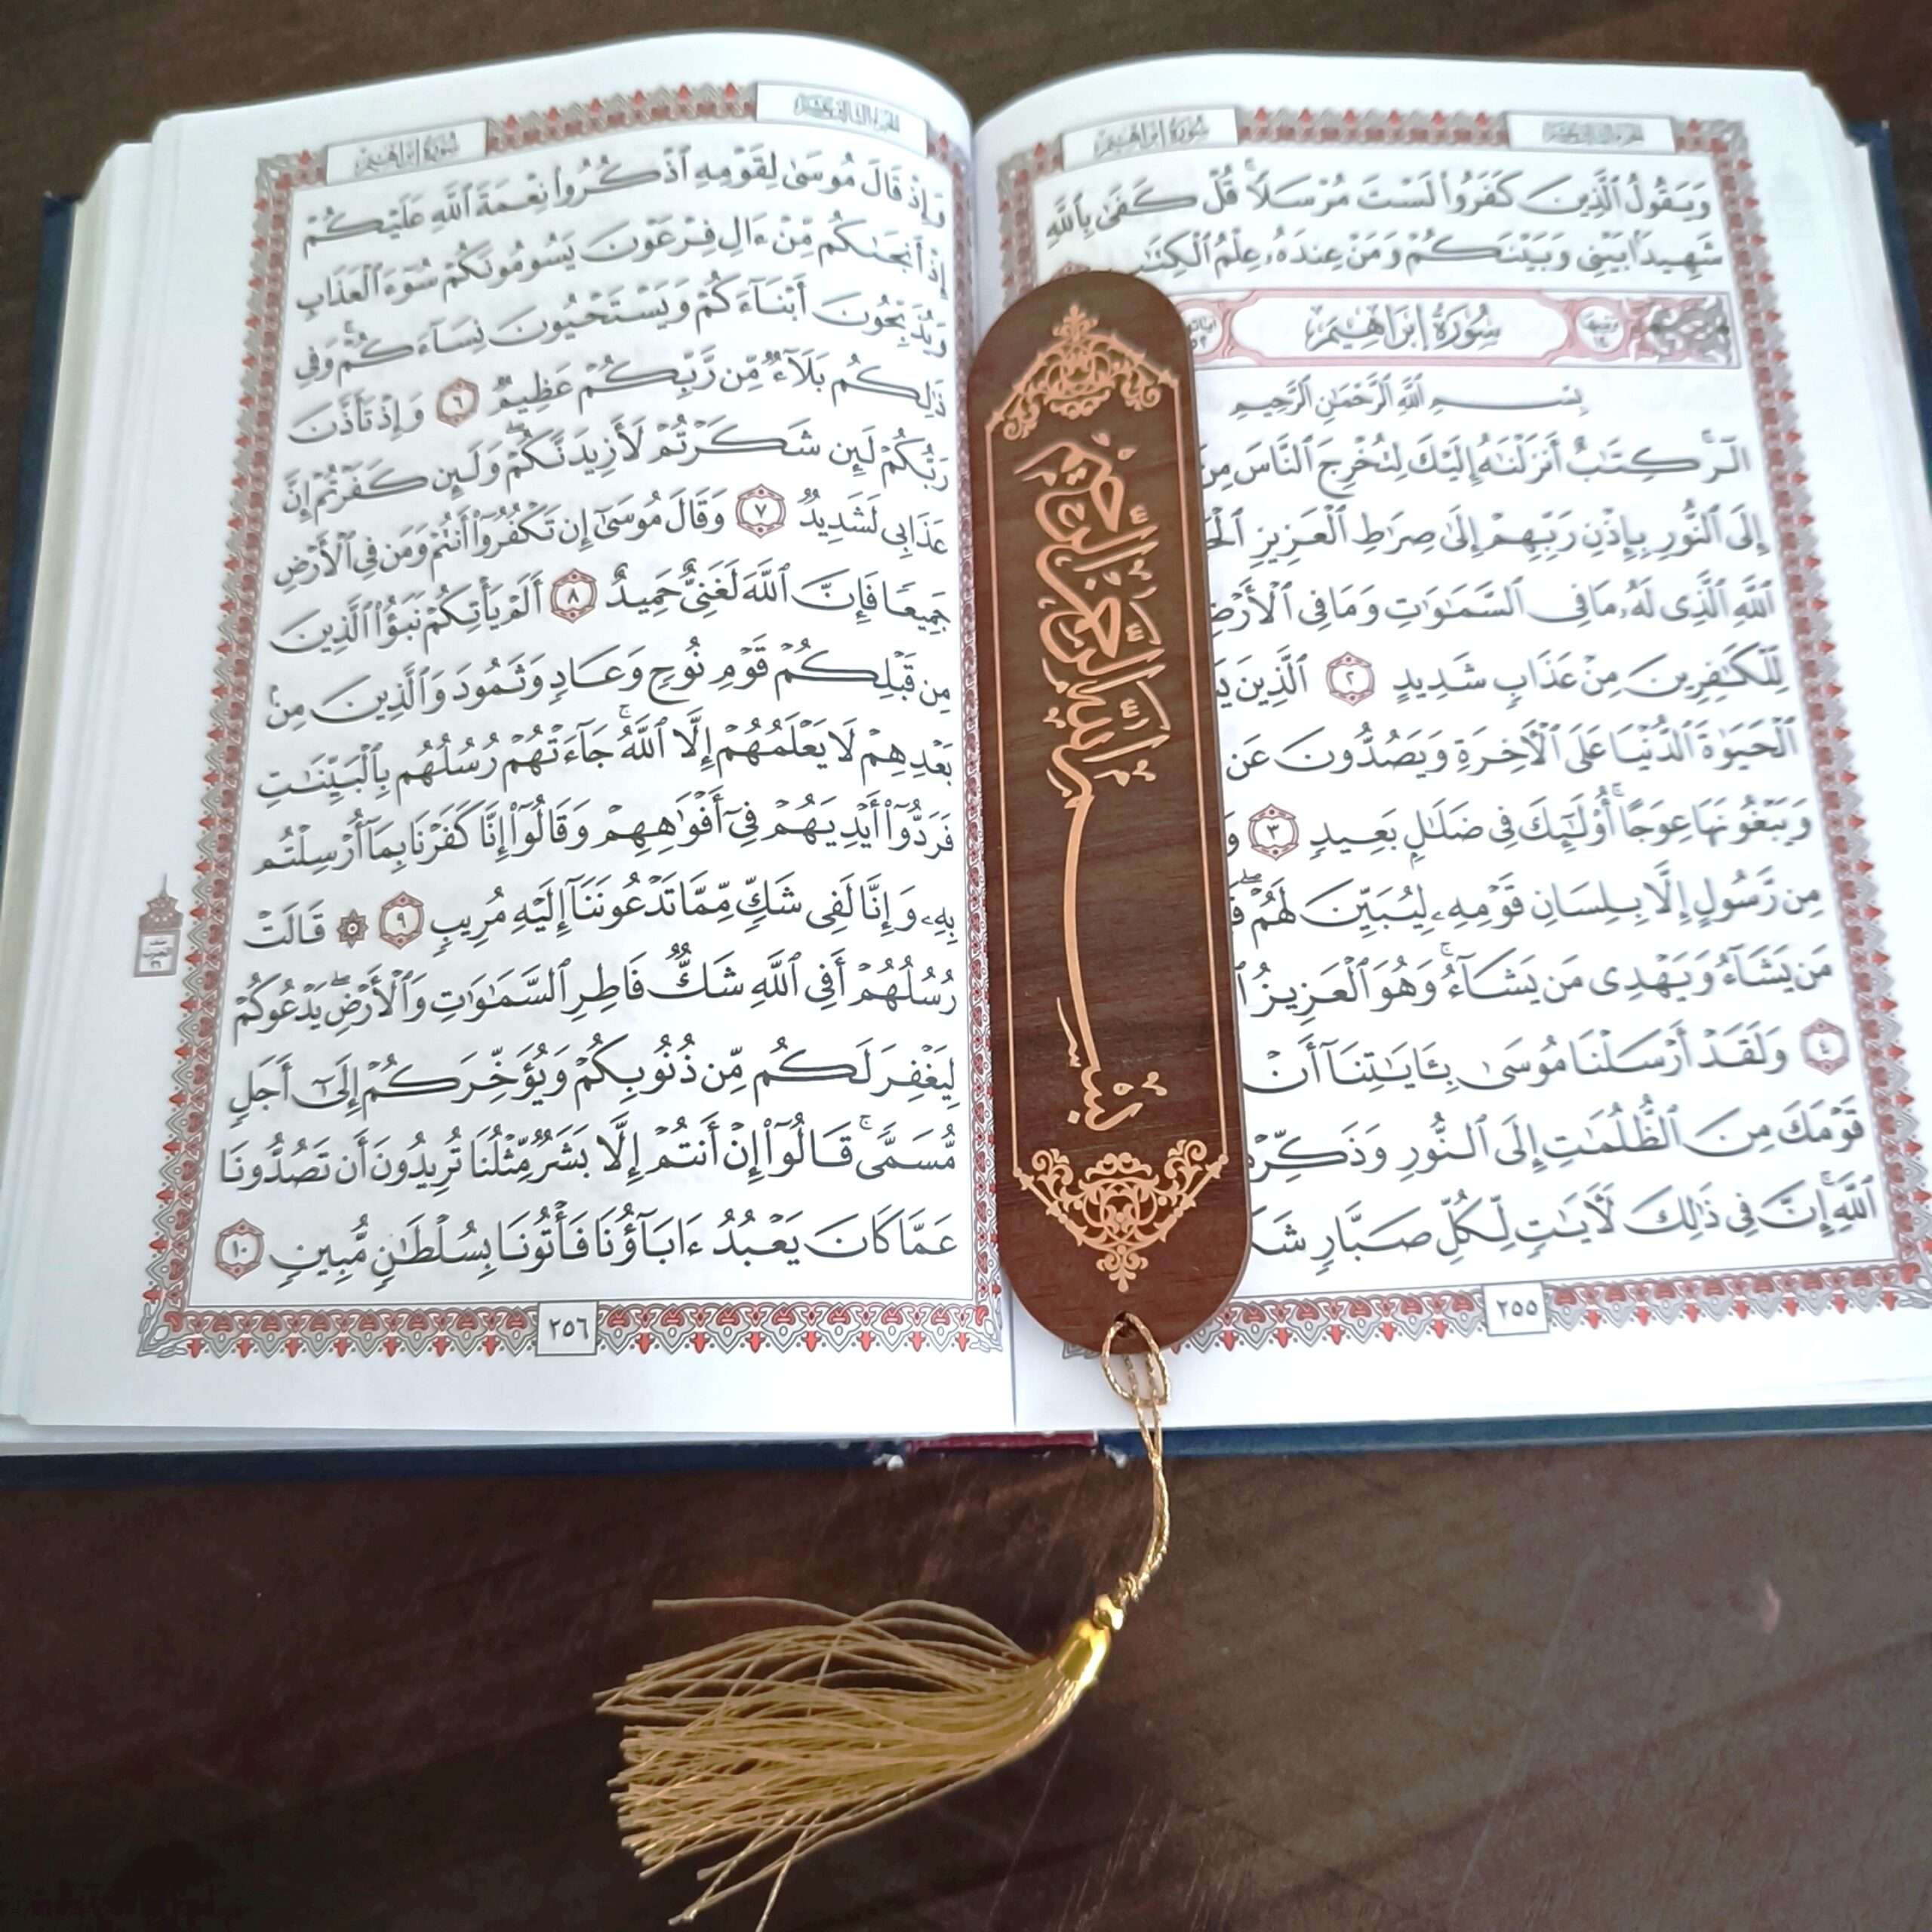 سُورَةُ إِبْرَاهِيمَ
وَيَقُولُ ٱلَّذِينَ كَفَرُواْ لَسْتَ مُرْسَلٗاۚ قُلْ كَفَىٰ بِٱللَّهِ
شَهِيدَۢا بَيْنِي وَبَيْنَكُمْ وَمَنْ عِندَهُۥ عِلْمُ ٱلْكِتَٰبِ
سُورَةُ إِبْرَاهِيمَ
بِسْمِ ٱللَّهِ ٱلرَّحْمَٰنِ ٱلرَّحِيمِ
الٓرۚ كِتَٰبٌ أَنزَلْنَٰهُ إِلَيْكَ لِتُخْرِجَ ٱلنَّاسَ مِنَ
إِلَى ٱلنُّورِ بِإِذْنِ رَبِّهِمْ إِلَىٰ صِرَٰطِ ٱلْعَزِيزِ
ٱللَّهِ ٱلَّذِي لَهُۥ مَا فِي ٱلسَّمَٰوَٰتِ وَمَا فِي ٱلْأَرْضِ
لِّلْكَٰفِرِينَ مِنْ عَذَابٖ شَدِيدٍ ٢ ٱلَّذِينَ
ٱلْحَيَوٰةَ ٱلدُّنْيَا عَلَى ٱلْأٓخِرَةِ وَيَصُدُّونَ عَن
وَيَبْغُونَهَا عِوَجًاۚ أُوْلَٰٓئِكَ فِي ضَلَٰلِۭ بَعِيدٖ ٣
مِن رَّسُولٍ إِلَّا بِلِسَانِ قَوْمِهِۦ لِيُبَيِّنَ لَهُمْۖ
مَن يَشَآءُ وَيَهْدِي مَن يَشَآءُۚ وَهُوَ ٱلْعَزِيزُ
٤ وَلَقَدْ أَرْسَلْنَا مُوسَىٰ بِـَٔايَٰتِنَآ أَنْ
قَوْمَكَ مِنَ ٱلظُّلُمَٰتِ إِلَى ٱلنُّورِ وَذَكِّرْهُم
ٱللَّهِۚ إِنَّ فِي ذَٰلِكَ لَأٓيَٰتٖ لِّكُلِّ صَبَّارٖ
٢٥٥
بِسْمِ ٱللَّهِ ٱلرَّحْمَٰنِ ٱلرَّحِيمِ
سُورَةُ إِبْرَاهِيمَ
وَإِذْ قَالَ مُوسَىٰ لِقَوْمِهِ ٱذْكُرُواْ نِعْمَةَ ٱللَّهِ عَلَيْكُمْ
إِذْ أَنجَىٰكُم مِّنْ ءَالِ فِرْعَوْنَ يَسُومُونَكُمْ سُوٓءَ ٱلْعَذَابِ
وَيُذَبِّحُونَ أَبْنَآءَكُمْ وَيَسْتَحْيُونَ نِسَآءَكُمْۚ وَفِي
ذَٰلِكُم بَلَآءٞ مِّن رَّبِّكُمْ عَظِيمٞ ٦ وَإِذْ تَأَذَّنَ
رَبُّكُمْ لَئِن شَكَرْتُمْ لَأَزِيدَنَّكُمْۖ وَلَئِن كَفَرْتُمْ إِنَّ
عَذَابِي لَشَدِيدٞ ٧ وَقَالَ مُوسَىٰٓ إِن تَكْفُرُوٓاْ أَنتُمْ وَمَن فِي ٱلْأَرْضِ
جَمِيعٗا فَإِنَّ ٱللَّهَ لَغَنِيٌّ حَمِيدٌ ٨ أَلَمْ يَأْتِكُمْ نَبَؤُاْ ٱلَّذِينَ
مِن قَبْلِكُمْ قَوْمِ نُوحٖ وَعَادٖ وَثَمُودَ وَٱلَّذِينَ مِنۢ
بَعْدِهِمْ لَا يَعْلَمُهُمْ إِلَّا ٱللَّهُۚ جَآءَتْهُمْ رُسُلُهُم بِٱلْبَيِّنَٰتِ
فَرَدُّوٓاْ أَيْدِيَهُمْ فِيٓ أَفْوَٰهِهِمْ وَقَالُوٓاْ إِنَّا كَفَرْنَا بِمَآ أُرْسِلْتُم
بِهِۦ وَإِنَّا لَفِي شَكّٖ مِّمَّا تَدْعُونَنَآ إِلَيْهِ مُرِيبٖ ٩ ۞ قَالَتْ
رُسُلُهُمْ أَفِي ٱللَّهِ شَكّٞ فَاطِرِ ٱلسَّمَٰوَٰتِ وَٱلْأَرْضِۖ يَدْعُوكُمْ
لِيَغْفِرَ لَكُم مِّن ذُنُوبِكُمْ وَيُؤَخِّرَكُمْ إِلَىٰٓ أَجَلٖ
مُّسَمّٗىۚ قَالُوٓاْ إِنْ أَنتُمْ إِلَّا بَشَرٞ مِّثْلُنَا تُرِيدُونَ أَن تَصُدُّونَا
عَمَّا كَانَ يَعْبُدُ ءَابَآؤُنَا فَأْتُونَا بِسُلْطَٰنٖ مُّبِينٖ ١٠
٢٥٦